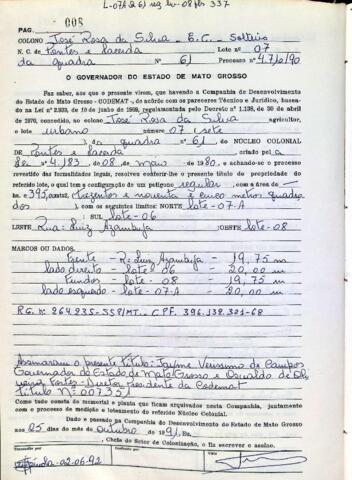 L-07(Q 6) reg. nº-08 fls 337
PAG. 008
COLONO José Rosa da Silva - E.C. - Solteiro
N. C. de Pontes e Lacerda Lote nº 07
da quadra Nº 61 Processo nº 4.7/0/90
O GOVERNADOR DO ESTADO DE MATO GROSSO
Faz saber, aos que o presente virem, que havendo a Companhia de Desenvolvimento
do Estado de Mato Grosso - CODEMAT -, de acordo com os pareceres Técnico e Jurídico, basea-
do na Lei nº 2.933, de 10 de junho de 1969, regulamentada pelo Decreto nº 1.138, de 30 de abril
de 1970, concedido ao colono José Rosa da Silva agricultor,
o lote urbano número 07 (sete
) da quadra nº 61 DO NÚCLEO COLONIAL
DE Pontes e Lacerda criado pel a
Lei nº 4.183, de 08, de maio de 1980, e achando-se o processo
revestido das formalidades legais, resolveu conferir-lhe o presente título de propriedade do
referido lote, o qual tem a configuração de um polígono regular, com a área de —
ha. e 395 m2. (trezentos e noventa e cinco metros quadra
dos), com os seguintes limites: NORTE lote-07-A
SUL lote-06
LESTE Rua: Luiz Azambuja OESTE lote-08
MARCOS OU DADOS
Frente - R: Luiz Azambuja - 19,75 m
lado direito - lote 06 - 20,00 m
Fundos - lote - 08 - 19,75 m
lado esquerdo - lote-07-A - 20,00 m
R.G. nº 264235-SSP/MT. C.P.F. 396.138.321-68
Assinaram o presente título: Jayme Verissimo de Campos
Governador do Estado de Mato Grosso e Oswaldo de
Fortes - Diretor Presidente da Codemat
Título Nº 007351
Como tudo consta do memorial e planta que ficam arquivados nesta Companhia, juntamente
com o processo de medição e loteamento do referido Núcleo Colonial.
Dado e passado na Companhia do Desenvolvimento do Estado de Mato Grosso
aos 25 dias do mês de outubro de 1991. Eu,
, Chefe do Setor de Colonização, o fiz escrever e assino.
02-06-92